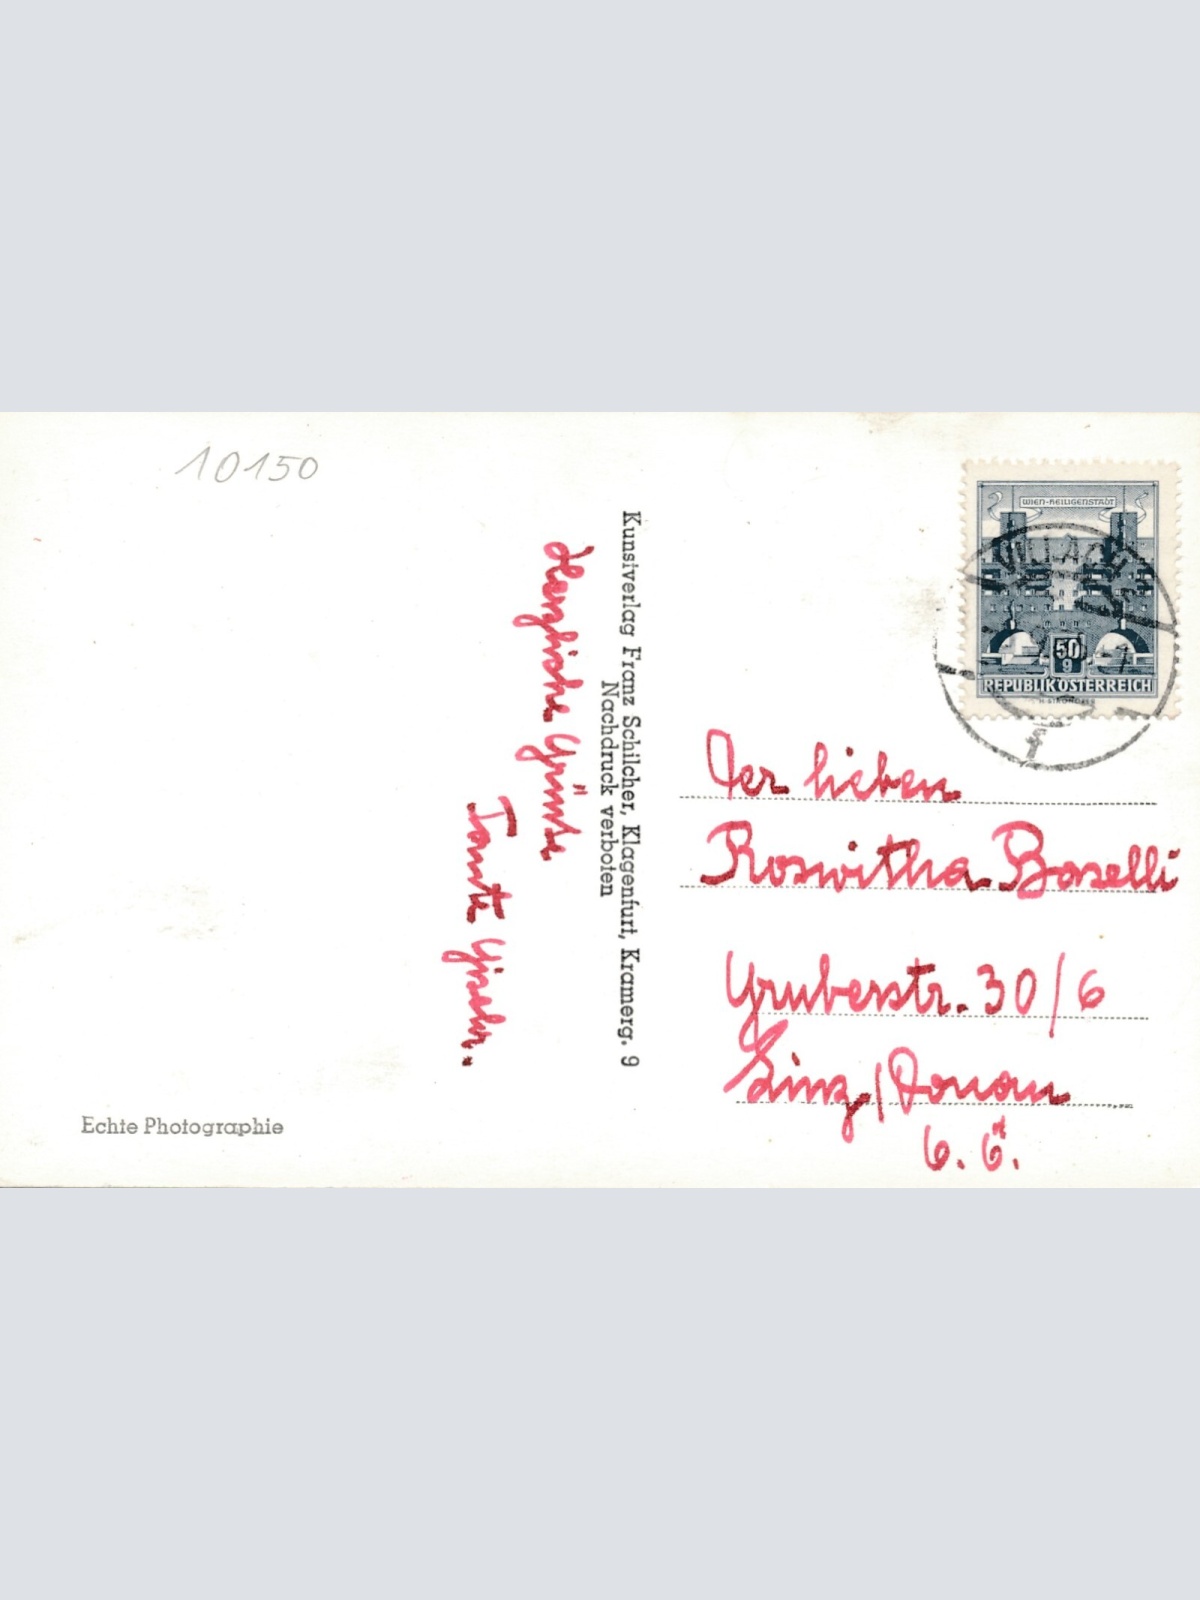 10150
Herzliche Grüsse
Tante Gisela.
Kunstverlag Franz Schilcher, Klagenfurt, Kramerg. 9
Nachdruck verboten
Echte Photographie
WIEN-HEILIGENSTADT
50 g
REPUBLIK ÖSTERREICH
VILLACH
f
Der lieben
Roswitha Boselli
Gruberstr. 30/6
Linz/Donau